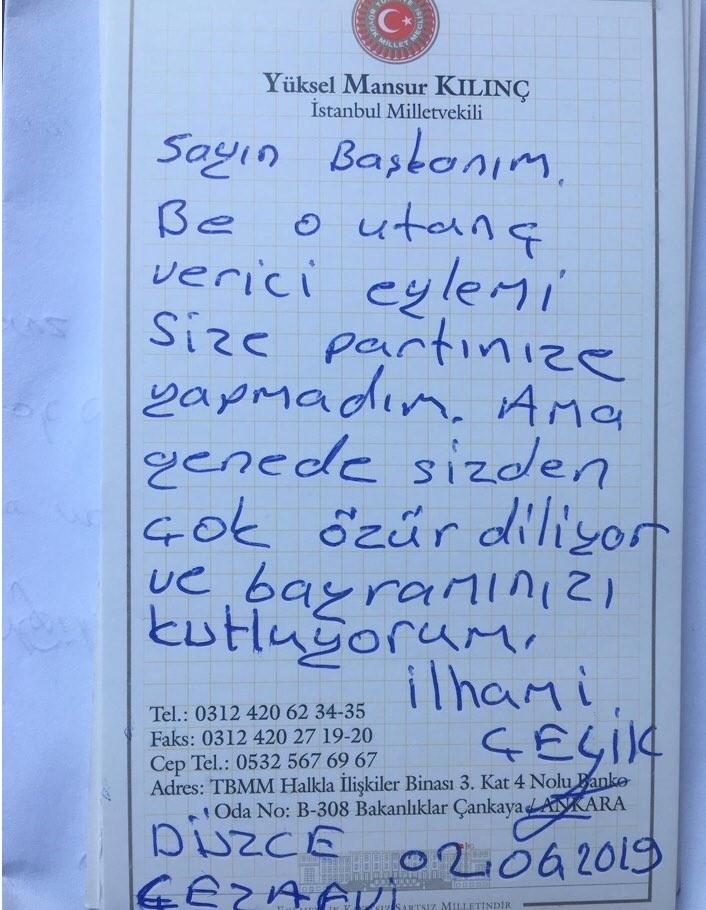 Yüksel Mansur KILINÇ
İstanbul Milletvekili
Sayın Başkanım.
Be o utanç
verici eylemi
size partinize
yapmadım. Ama
genede sizden
çok özür diliyor
ve bayramınızı
kutluyorum.
ilhami
ÇELİK
Tel.: 0312 420 62 34-35
Faks: 0312 420 27 19-20
Cep Tel.: 0532 567 69 67
Adres: TBMM Halkla İlişkiler Binası 3. Kat 4 Nolu Banko
Oda No: B-308 Bakanlıklar Çankaya / ANKARA
DÜZCE 02.06 2019
CEZAEVİ
KAYITSIZ ŞARTSIZ MİLLETİNDİR